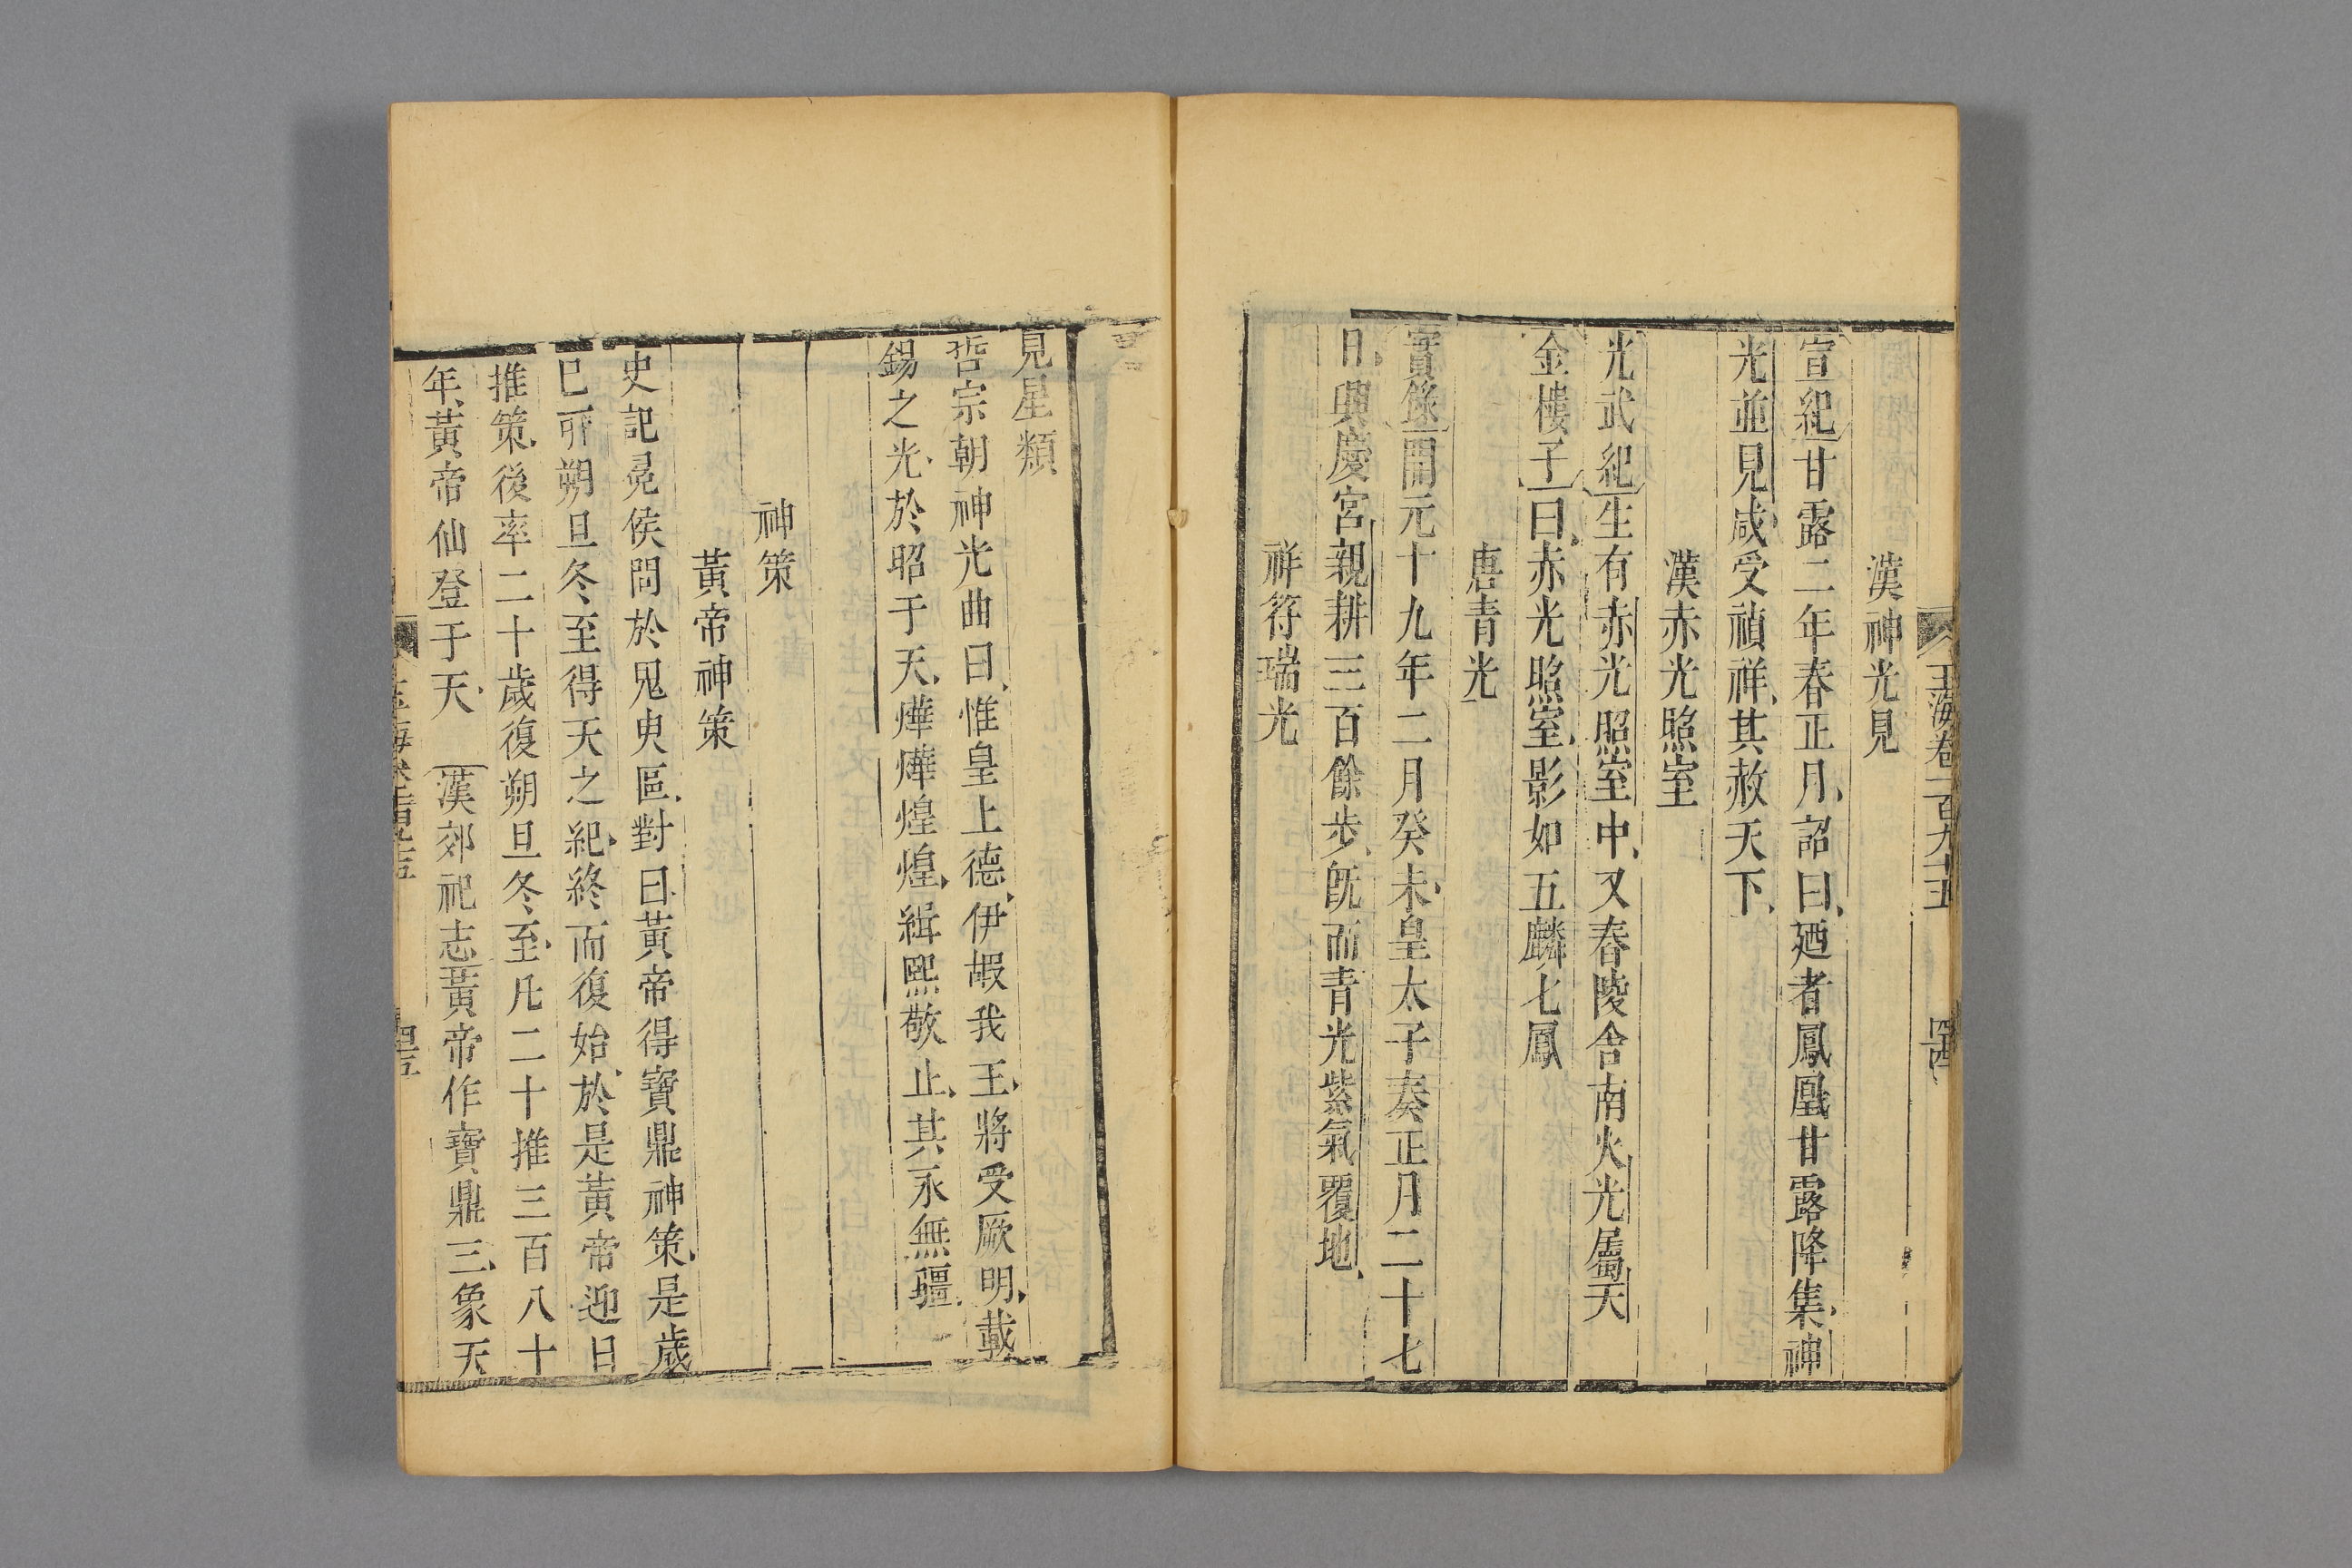 玉海卷一百九十五
漢神光見
宣紀甘露二年春正月詔曰廼者鳳凰甘露降集神
光並見咸受禎祥其赦天下
漢赤光照室
光武紀生有赤光照室中又舂陵舍南火光屬天
金樓子曰赤光照室影如五麟七鳳
唐青光
實錄開元十九年二月癸未皇太子奏正月二十七
日興慶宮親耕三百餘步旣而青光紫氣覆地
祥符瑞光
見星類
哲宗朝神光曲曰惟皇上德伊嘏我王將受厥明載
錫之光於昭于天燁燁煌煌緝熙敬止其永無疆
神策
黃帝神策
史記卿侯問於鬼臾區對曰黃帝得寶鼎神策是歲
巳酉朔旦冬至得天之紀終而復始於是黃帝迎日
推策後率二十歲復朔旦冬至凡二十推三百八十
年黃帝仙登于天 漢郊祀志黃帝作寶鼎三象天